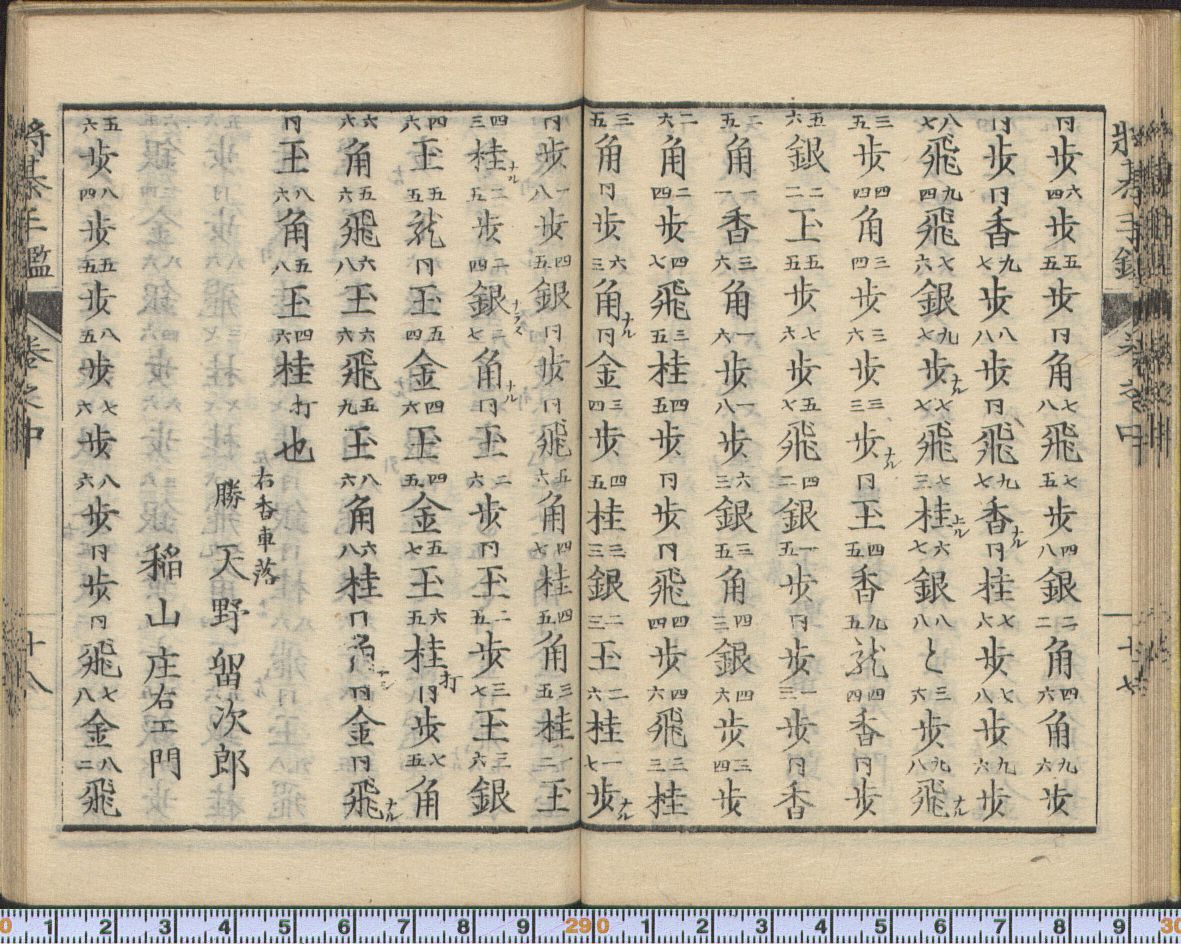 將棊手鑑 巻之中 十七
同歩 六四歩 五五歩 同角 七八飛 七五歩 四八銀 二二角 四六角 九六歩
同歩 同香 九七歩 八八歩 同飛 九七香ナル 同桂 七六歩 七八歩 九六歩
八七飛 九四飛 七六銀 九七歩ナル 七七飛 七三桂上ル 六七銀 八八と 三六歩 九八飛ナル
三五歩 四四角 三四歩 二六歩 三三歩ナル 同王 四五香 九五龍 四四香 同歩
五六銀 二二王 五五歩 七六歩 五七飛 四二銀 一五歩 同歩 一三歩 同香
二五角 一一香 三六角 一六歩 一八歩 六三銀 三五角 四三銀 四六歩 三四歩
二六角 二四角 四七飛 三五桂 四五歩 同飛 四四歩 四六飛 三三桂
三五角 同歩 六三角ナル 同金 三四歩 四五桂 三三銀 二三王 二六桂 一七歩ナル
同歩 一八歩 四五銀 同歩 同飛 五六角 四七桂 四五角 三五桂 一二王
四三桂ナル 二五歩 二四銀ナラズ 二七角ナル 同王 二六歩 同王 二五歩 三七王 三六銀
四六王 五五龍 同王 五四金 四六王 四五金 五七王 六五桂打 同歩 七五角
六六角 五六飛 六八王 六六飛 五九王 八六角 六八桂 同角 同金 同飛ナル
同王 八六角 五八王 四六桂打也
右香車落
勝 天野留次郎
稲山庄右エ門
五六歩 八四歩 五五歩 八五歩 七六歩 八六歩 同歩 同飛 七八金 八二飛
將棊手鑑 巻之中 十八